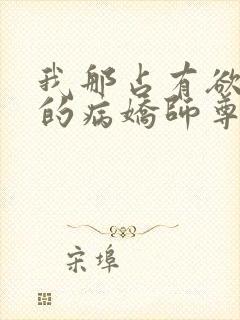 我那占有欲
的病嬌師尊
宋埠